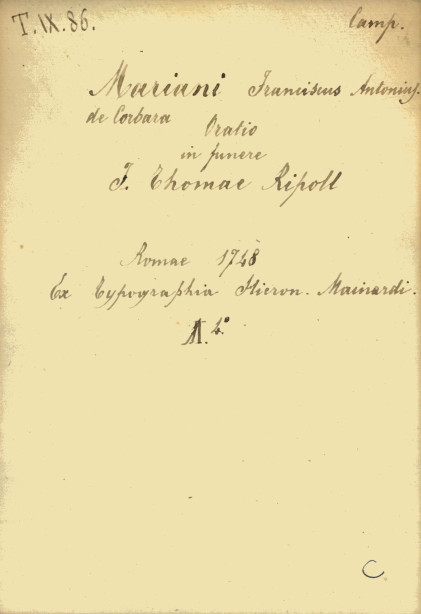 T. IX. 86.
Camp.
Mariani Franciscus Antonius.
de Corbara
Oratio
in funere
F. Thomae Ripoll
Romae 1748
Ex Typographia Hieron. Mainardi.
4°
C